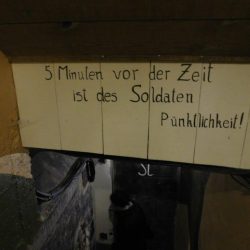 5 Minuten vor der Zeit
ist des Soldaten
Pünktlichkeit!